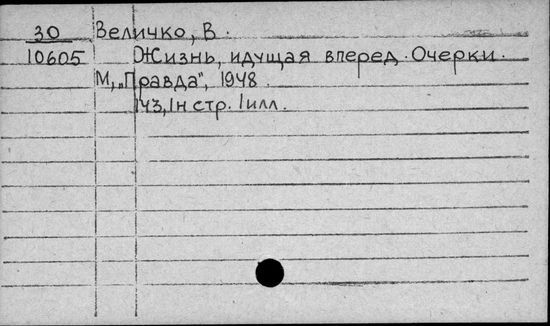 30 Величко, В.
10605 Жизнь, идущая вперед. Очерки.
М, „Правда", 1948.
143, 1н стр. 1 илл.